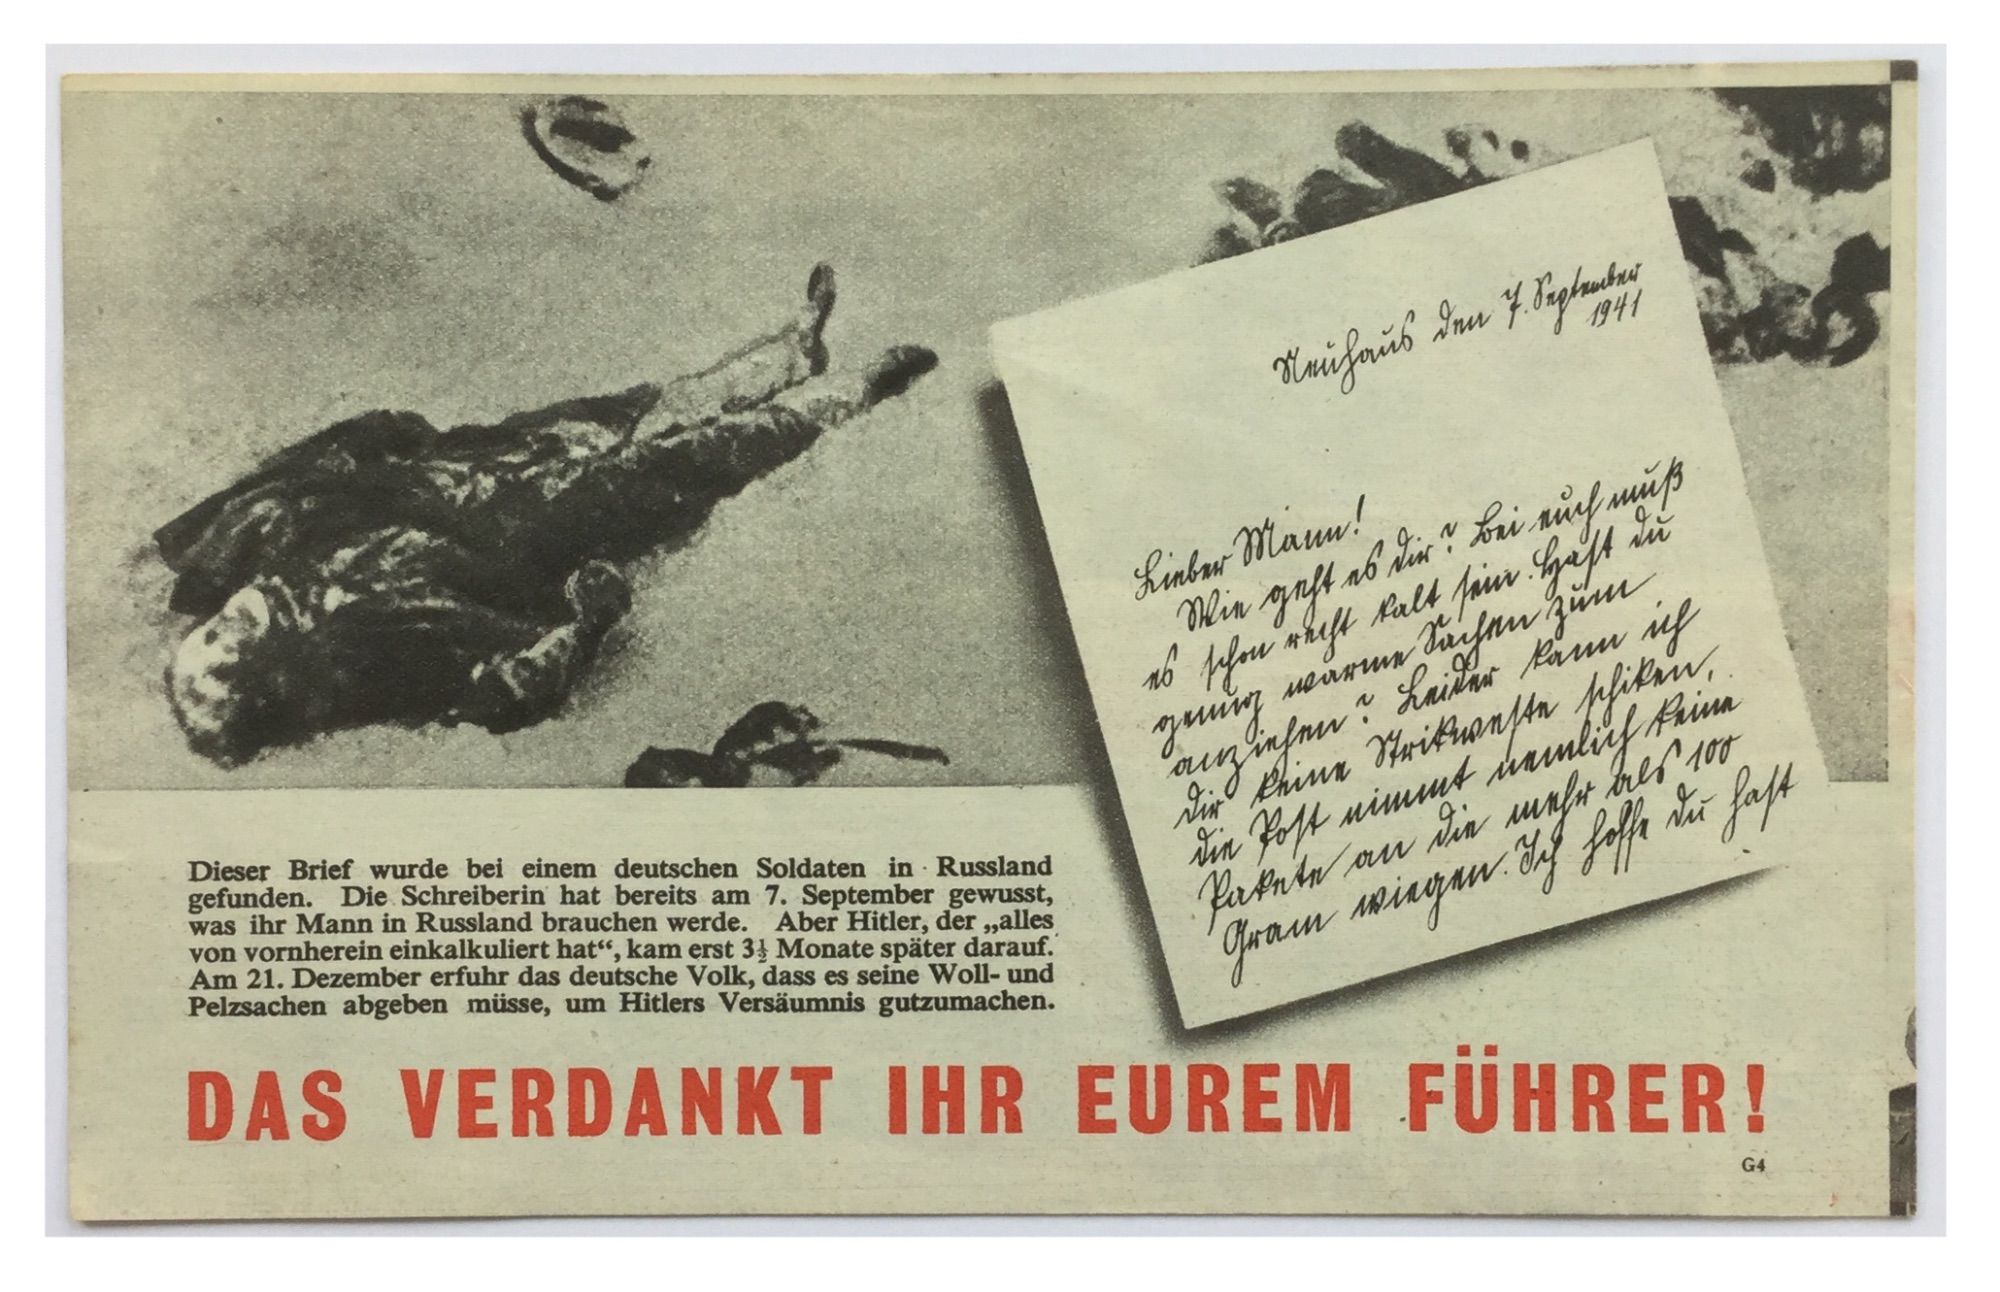 Neuhaus den 7. September
1941
Lieber Mann!
Wie geht es dir? Bei euch muß
es schon recht kalt sein. Hast du
genug warme Sachen zum
anziehen? Leider kann ich
dir keine Strikweste schiken,
die Post nimmt nemlich keine
Pakete an die mehr als 100
Gram wiegen. Ich hoffe du hast
Dieser Brief wurde bei einem deutschen Soldaten in Russland
gefunden. Die Schreiberin hat bereits am 7. September gewusst,
was ihr Mann in Russland brauchen werde. Aber Hitler, der „alles
von vornherein einkalkuliert hat“, kam erst 3½ Monate später darauf.
Am 21. Dezember erfuhr das deutsche Volk, dass es seine Woll- und
Pelzsachen abgeben müsse, um Hitlers Versäumnis gutzumachen.
DAS VERDANKT IHR EUREM FÜHRER!
G4